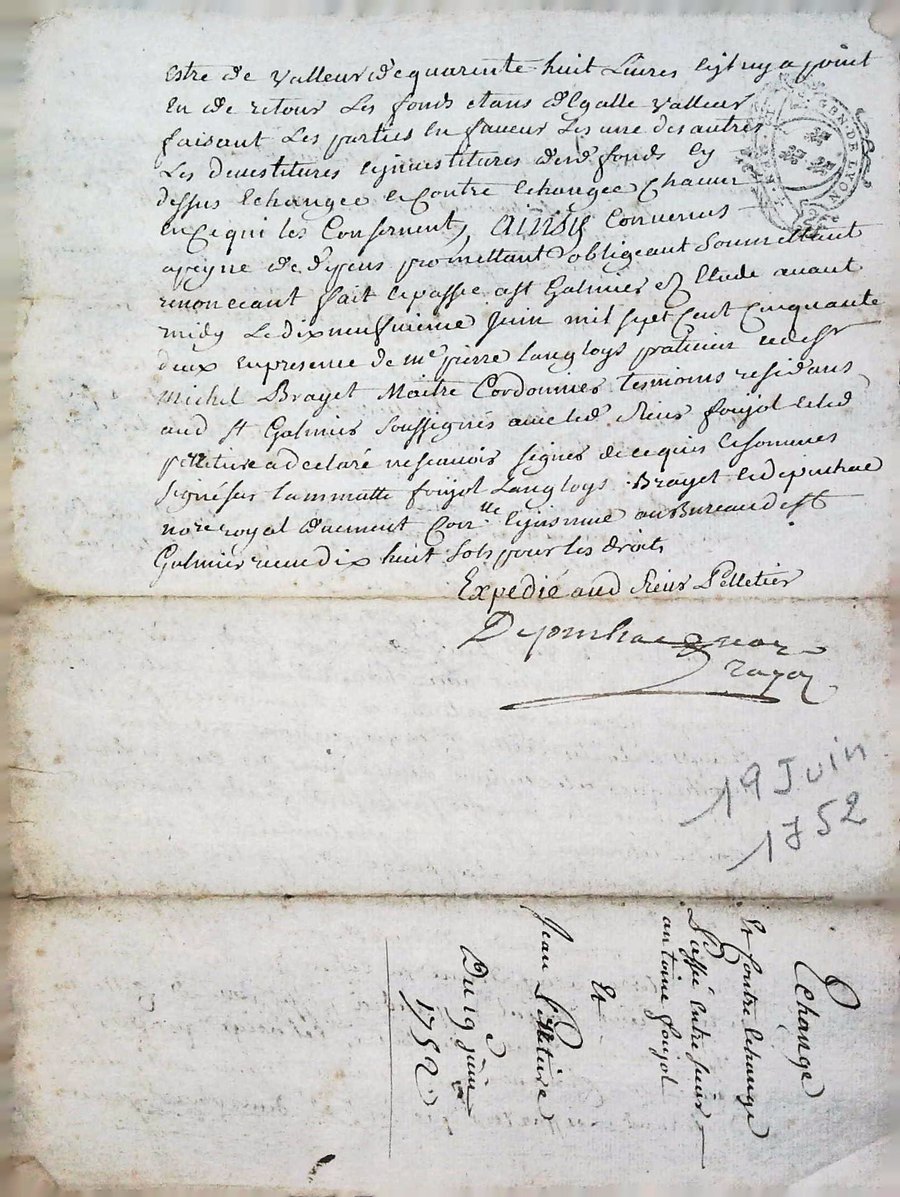 estre de valleur de quarente huit Livres et ny a point
En de retour Les fonds etans d'Egalle valleur
faisant Les parties En faveur Les une des autres
Les devestitures Investitures desd fonds Cy
dessus Echangée Contre Echangée Chacun
En Ce qui les Consernent, Ainsy Convenus
apeyne de depens promettant obligeant Soumettant
renonceant fait et passé a st Galmier Etude avant
midy Le dixneufvieme Juin mil sept Cent Cinquante
deux En presence de me pierre Langloys praticien et de sr
Michel Brayet Maitre Cordonnier tesmoins residans
aud st Galmier soussignés avec led sieur foujol et led
pelleture a declaré ne scavoir signer de ce enquis et sommés
signé sur la minutte foujol Langloys Brayet et
nore royal duement Con.lle au Bureau de st
Galmier receu dix huit sols pour les droits
Expedié aud sieur Pelletier
nore
royal
GEN. DE LYON
19 Juin
1752
Echange
Et Contre Echange
Passé Entre sieur
antoine foujol
Et
Jean Pelleture
Du 19e juin
1752